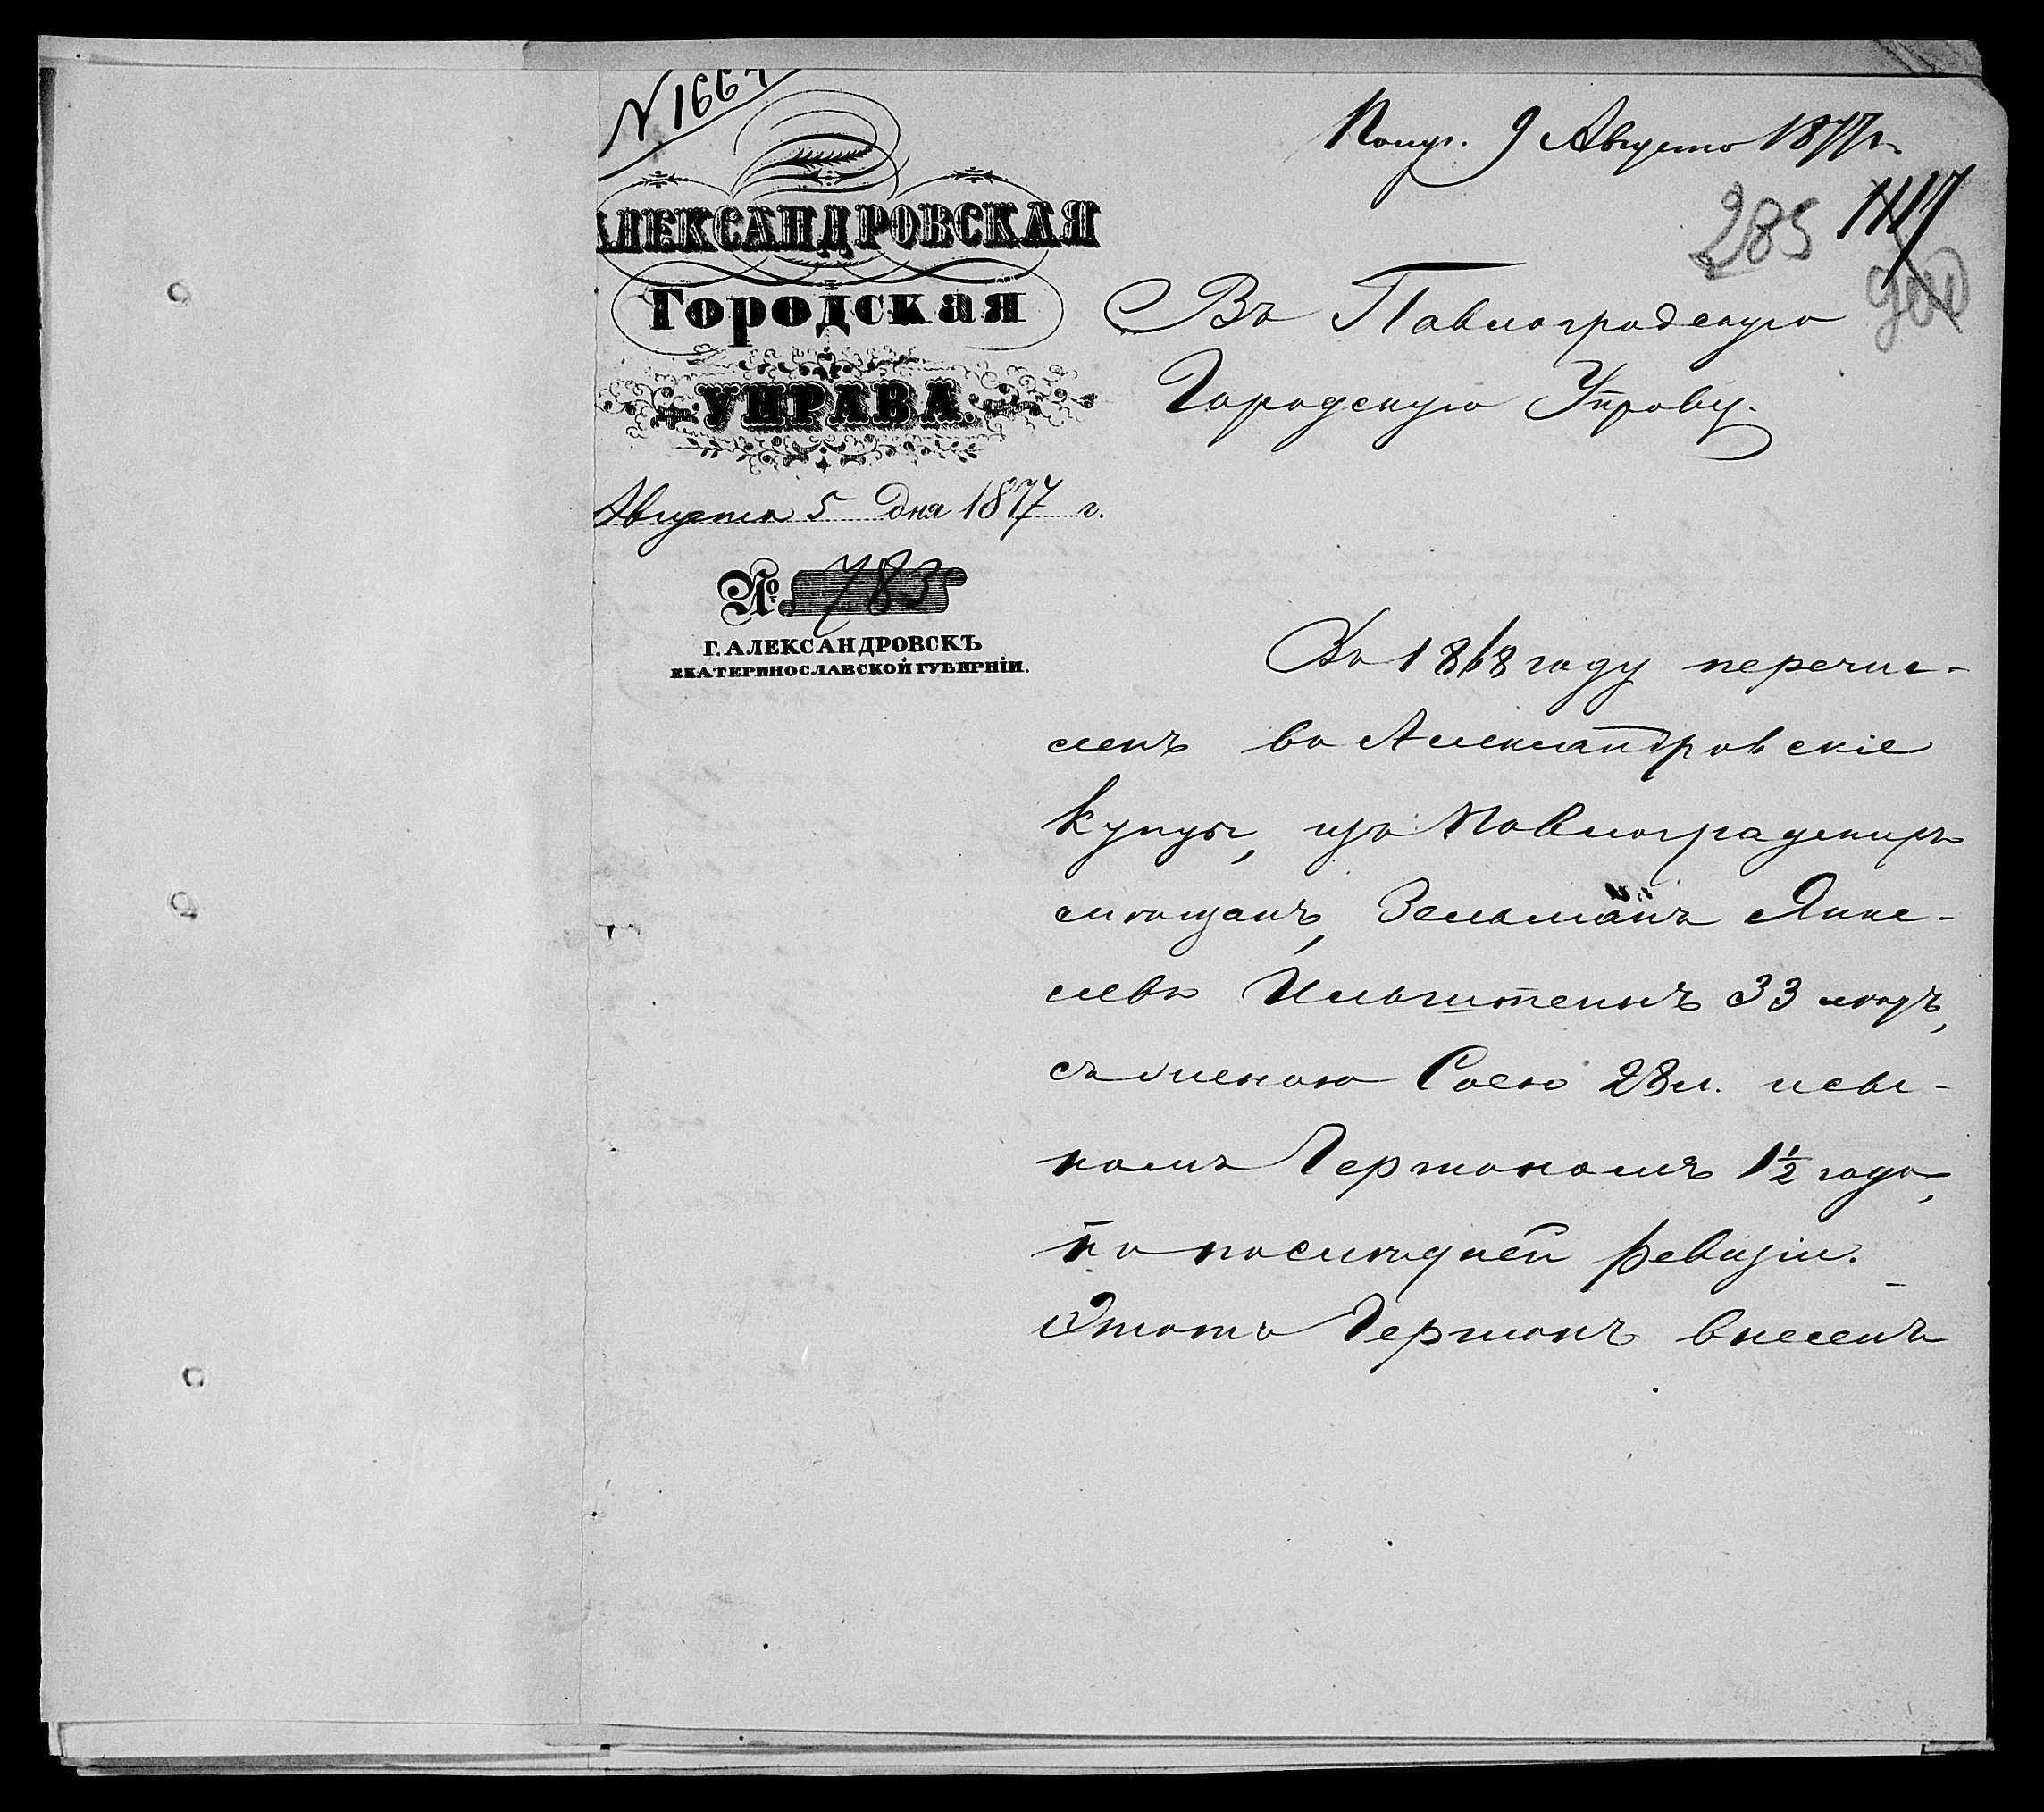 N 1667
Получ. 9 Августа 1877 г.
285
1117
АЛЕКСАНДРОВСКАЯ
Городская
УПРАВА.
Августа 5 дня 1877 г.
№ 783
Г. АЛЕКСАНДРОВСКЪ
ЕКАТЕРИНОСЛАВСКОЙ ГУБЕРНІИ.
Въ Павлоградскую
Городскую Управу.
Въ 1868 году перечис-
ленъ въ Александровскіе
Купцы, изъ Павлоградскихъ
мѣщанъ, Зельманъ Янке-
левъ Ильштейнъ 33 лѣтъ,
съ женою Соею 28 л. и сы-
номъ Германомъ 1½ года,
по послѣдней ревизіи.
Этотъ Германъ внесенъ